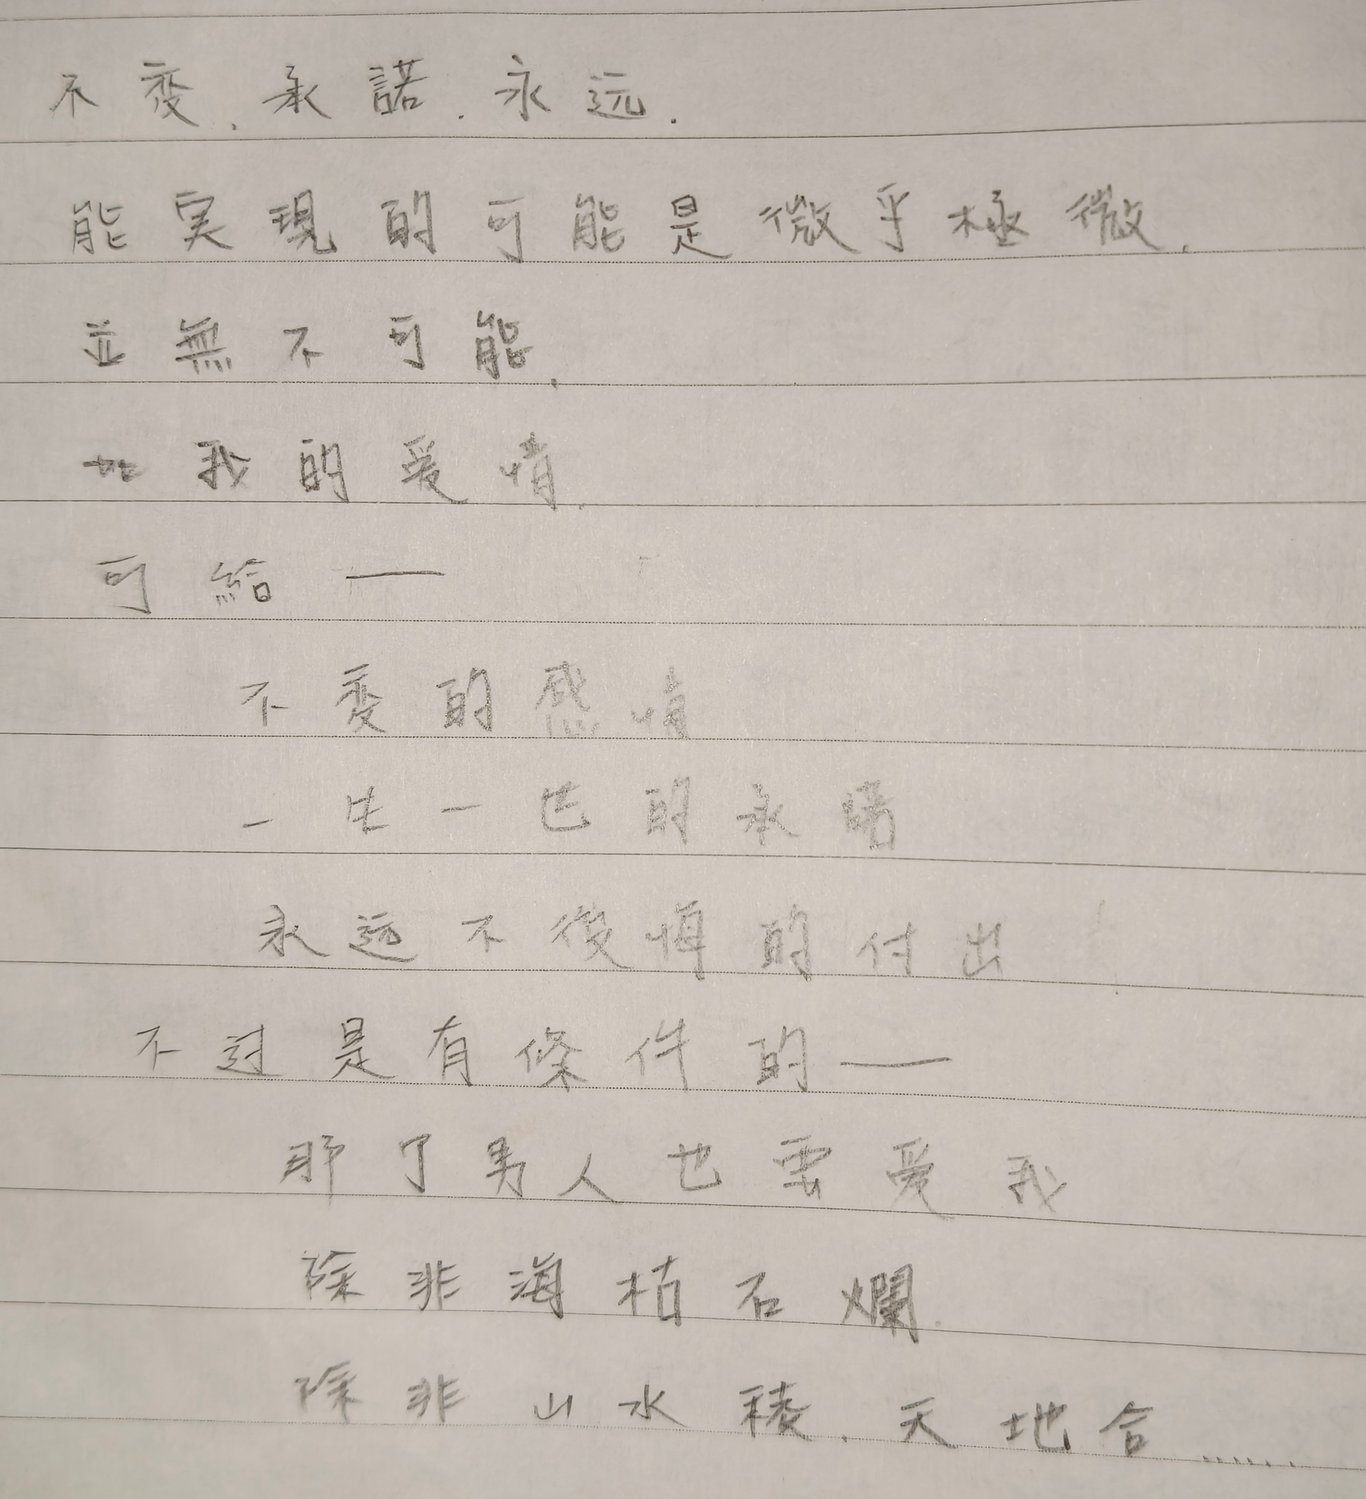 不変．承諾．永远．
能実現的可能是微乎極微．
並無不可能．
如我的爱情．
可給——
不変的感情
一生一世的承諾
永远不後悔的付出
不过是有條件的——
那了男人也要爱我
除非海枯石爛．
除非山水稜．天地合……